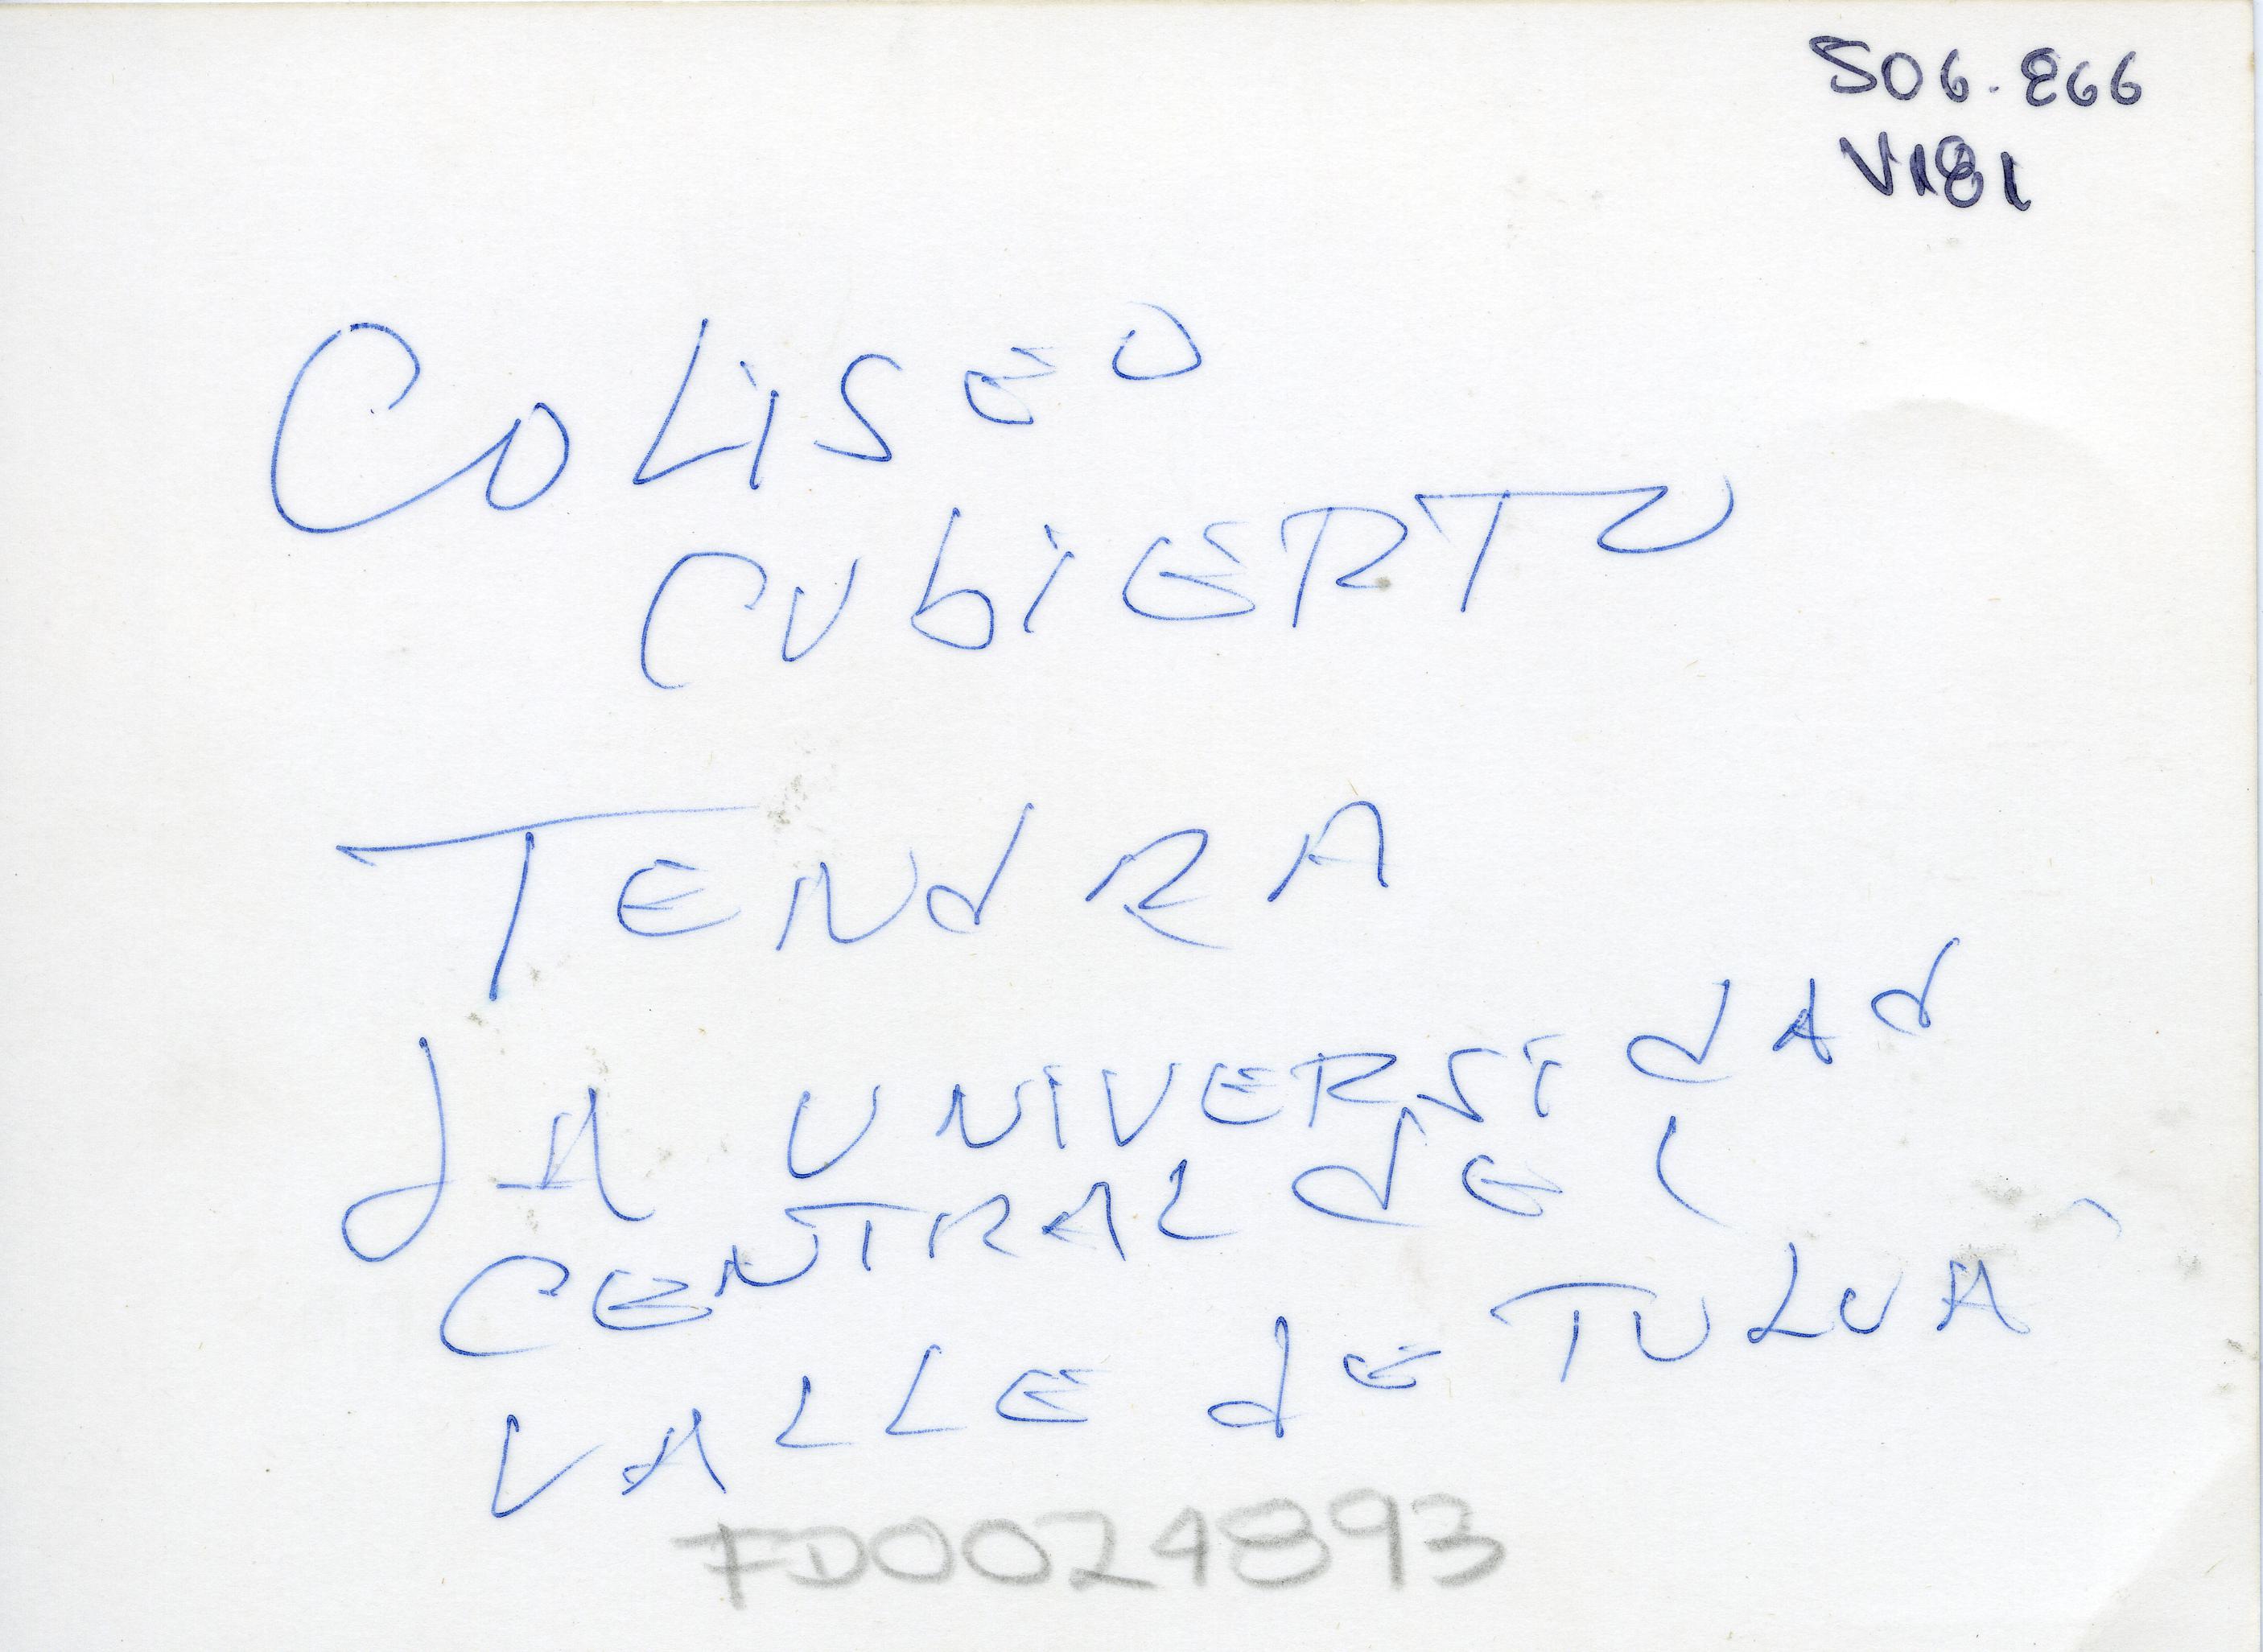 506.866
V181
COLiSEO
CUbiERTO
TENdRA
LA UNiVERSidAd
CENTRAL dEl
VALLE dE TULUA
FD0024893